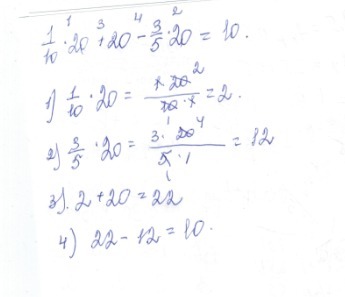 1/10 ¹· 20 ³+ 20 ⁴- 3/5 ²· 20 = 10.
1) 1/10 · 20 = 1 · 20 ² / 10 · 1 ₁ = 2.
2) 3/5 · 20 = 3 · 20 ⁴ / 5 · 1 ₁ = 12
3). 2 + 20 = 22
4) 22 - 12 = 10.